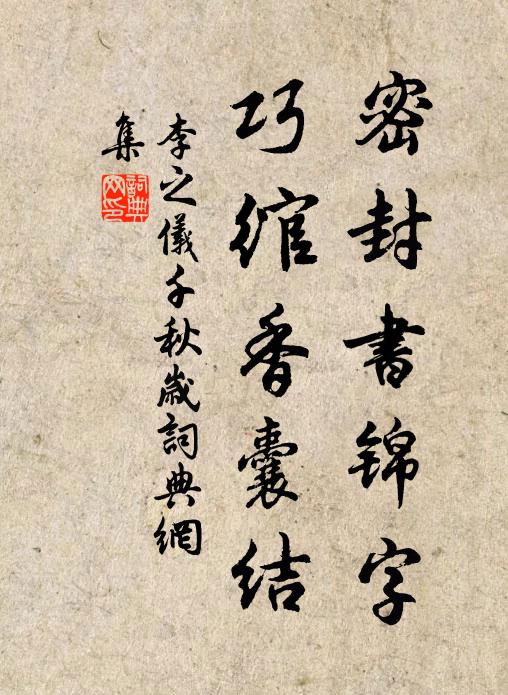 密封書錦字
巧綰香囊結
李之儀千秋歲詞典網
集
詞典網印